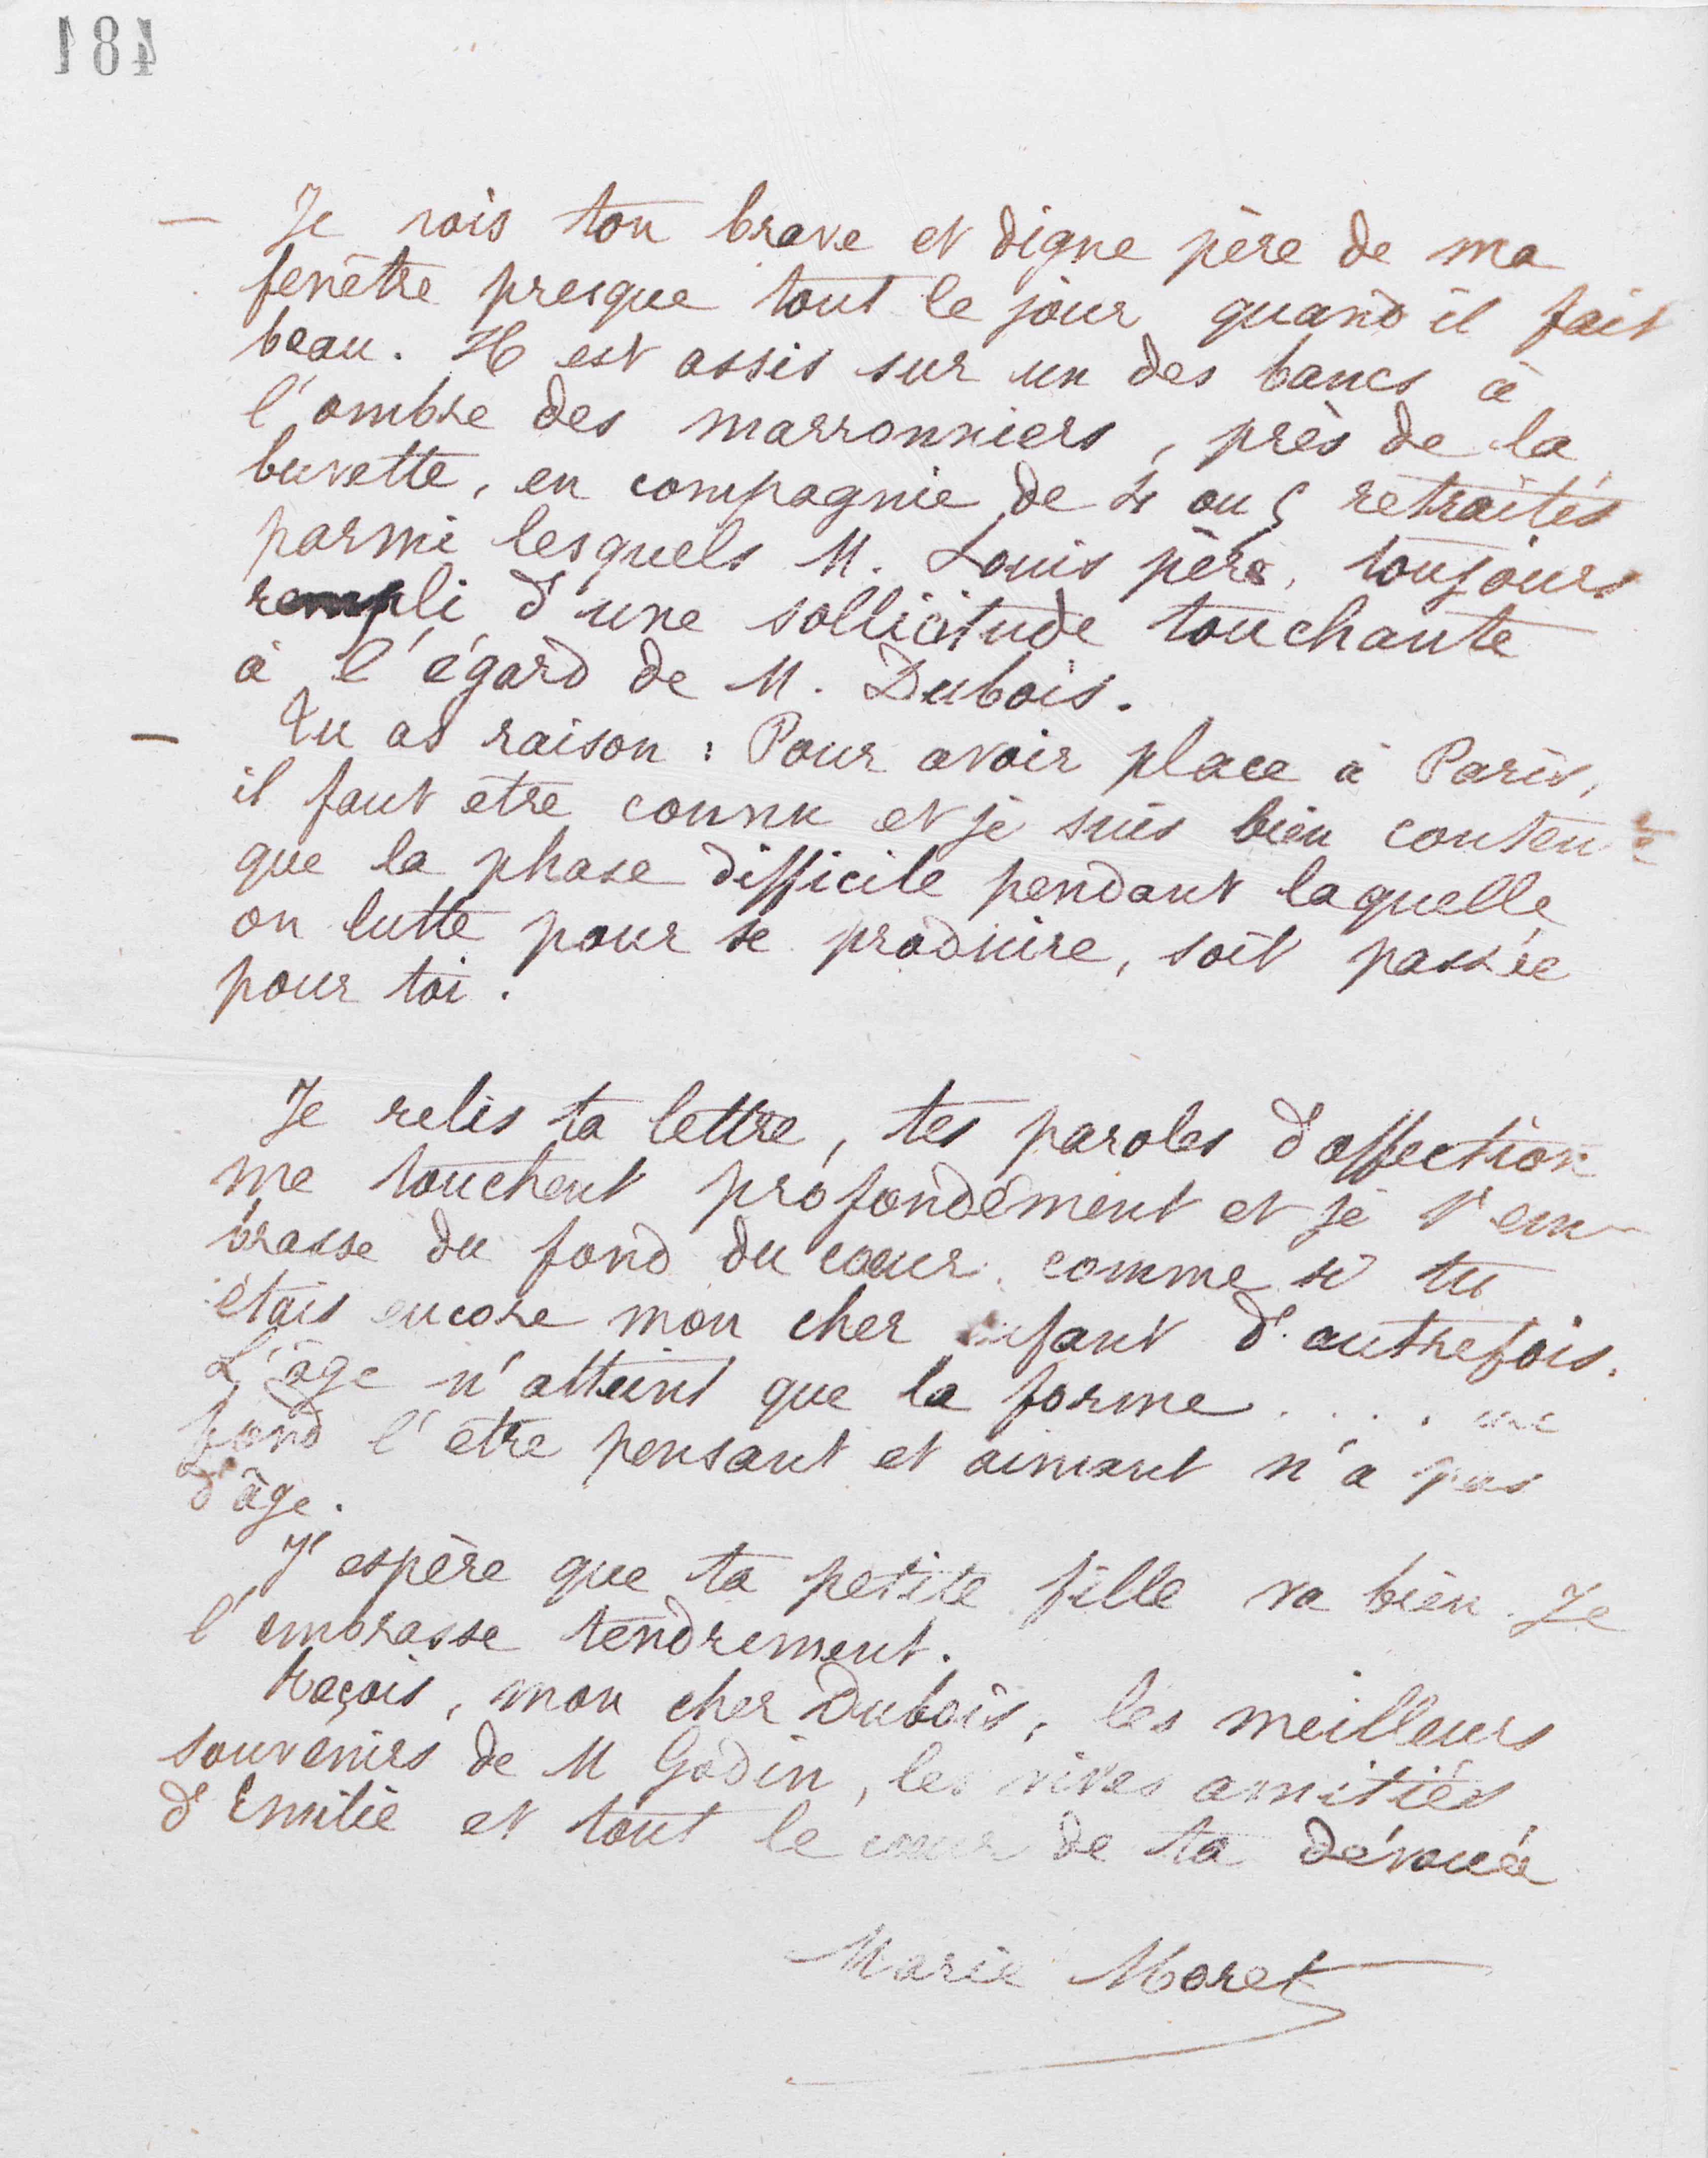 481
— Je vois ton brave et digne père de ma
fenêtre presque tout le jour quand il fait
beau. Il est assis sur un des bancs à
l'ombre des marronniers, près de la
buvette, en compagnie de 4 ou 5 retraités
parmi lesquels M. Louis père, toujours
rempli d'une sollicitude touchante
à l'égard de M. Dubois.
— Tu as raison : Pour avoir place à Paris,
il faut être connu et je suis bien contente
que la phase difficile pendant laquelle
on lutte pour se produire, soit passée
pour toi.
Je relis ta lettre, tes paroles d'affection
me touchent profondément et je t'em-
brasse du fond du cœur comme si tu
étais encore mon cher enfant d'autrefois.
L'âge n'atteint que la forme ....
fond l'être pensant et aimant n'a pas
d'âge.
J'espère que ta petite fille va bien. Je
l'embrasse tendrement.
Reçois, mon cher Dubois, les meilleurs
souvenirs de M Godin, les vives amitiés
d'Emilie et tout le cœur de ta dévouée
Marie Moret